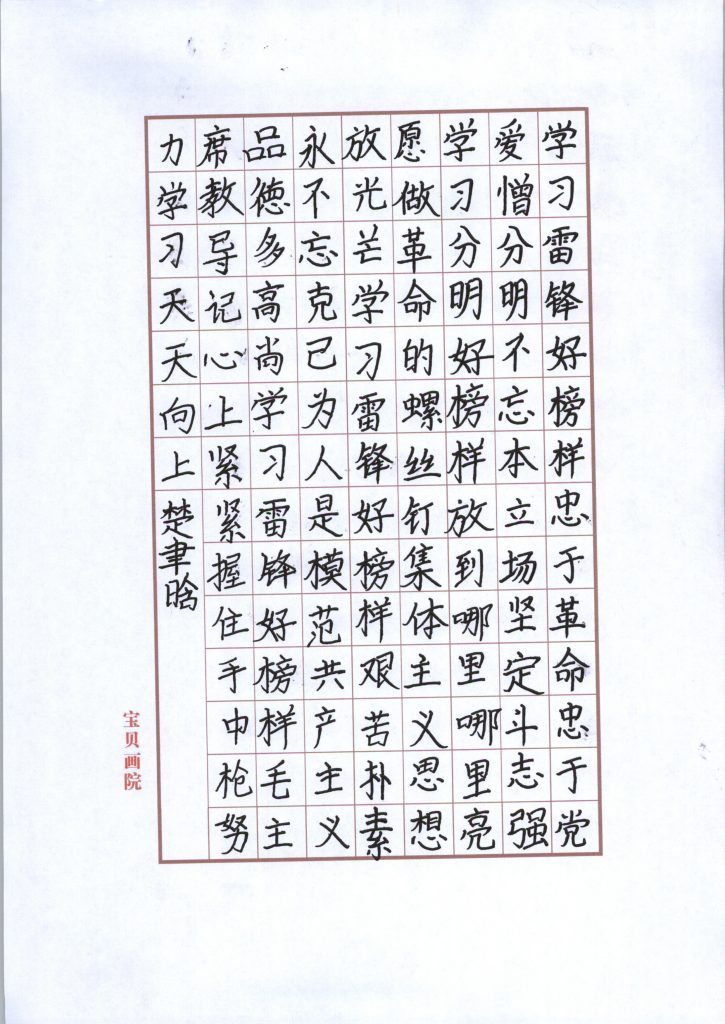 学习雷锋好榜样忠于革命忠于党
爱憎分明不忘本立场坚定斗志强
学习分明好榜样放到哪里哪里亮
愿做革命的螺丝钉集体主义思想
放光芒学习雷锋好榜样艰苦扑素
永不忘克己为人是模范共产主义
品德多高尚学习雷锋好榜样毛主
席教导记心上紧紧握住手中枪努
力学习天天向上
楚聿晗
宝贝画院